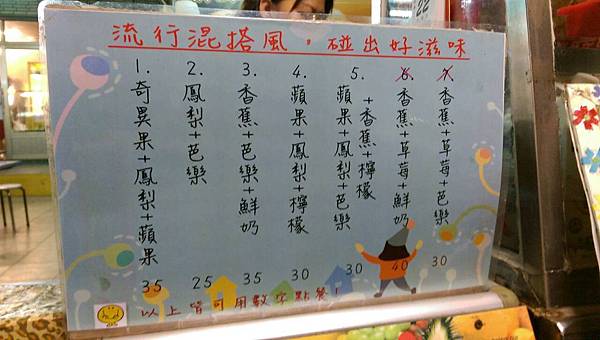 流行混搭風，碰出好滋味
1. 奇異果+鳳梨+蘋果 35
2. 鳳梨+芭樂 25
3. 香蕉+芭樂+鮮奶 35
4. 蘋果+鳳梨+檸檬 30
5. 蘋果+鳳梨+芭樂
+香蕉+檸檬 30
6. 香蕉+草莓+鮮奶 40
7. 香蕉+草莓+芭樂 30
以上皆可用數字點餐！
22